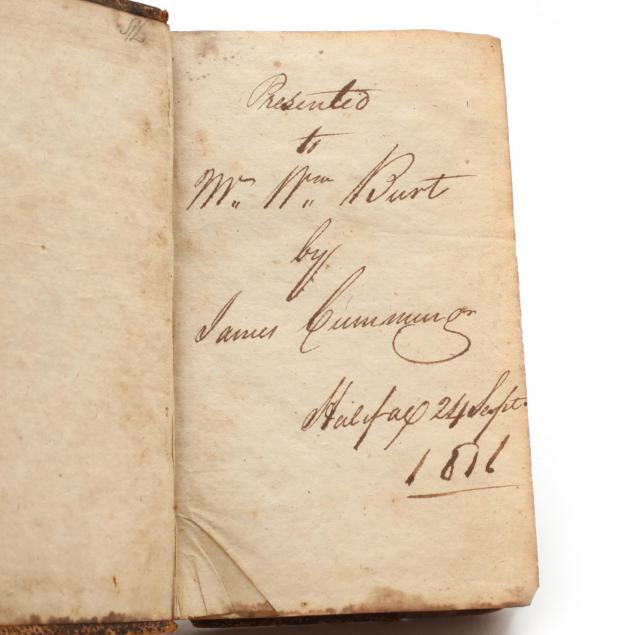 Presented
to
Mr. Wm. Burt
by
James Cummings
Halifax 24 Sept.
1816